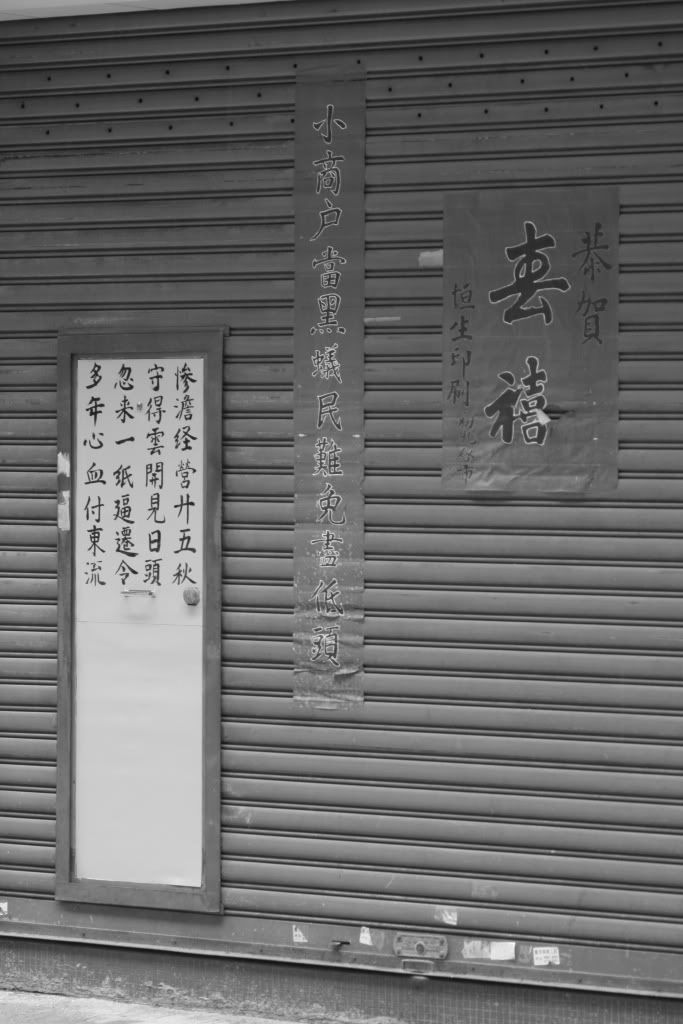 恭賀
春禧
恒生印刷
小商户當黑蟻民難免盡低頭
惨澹経營廿五秋
守得雲開見日頭
忽来一纸逼遷令
多年心血付東流